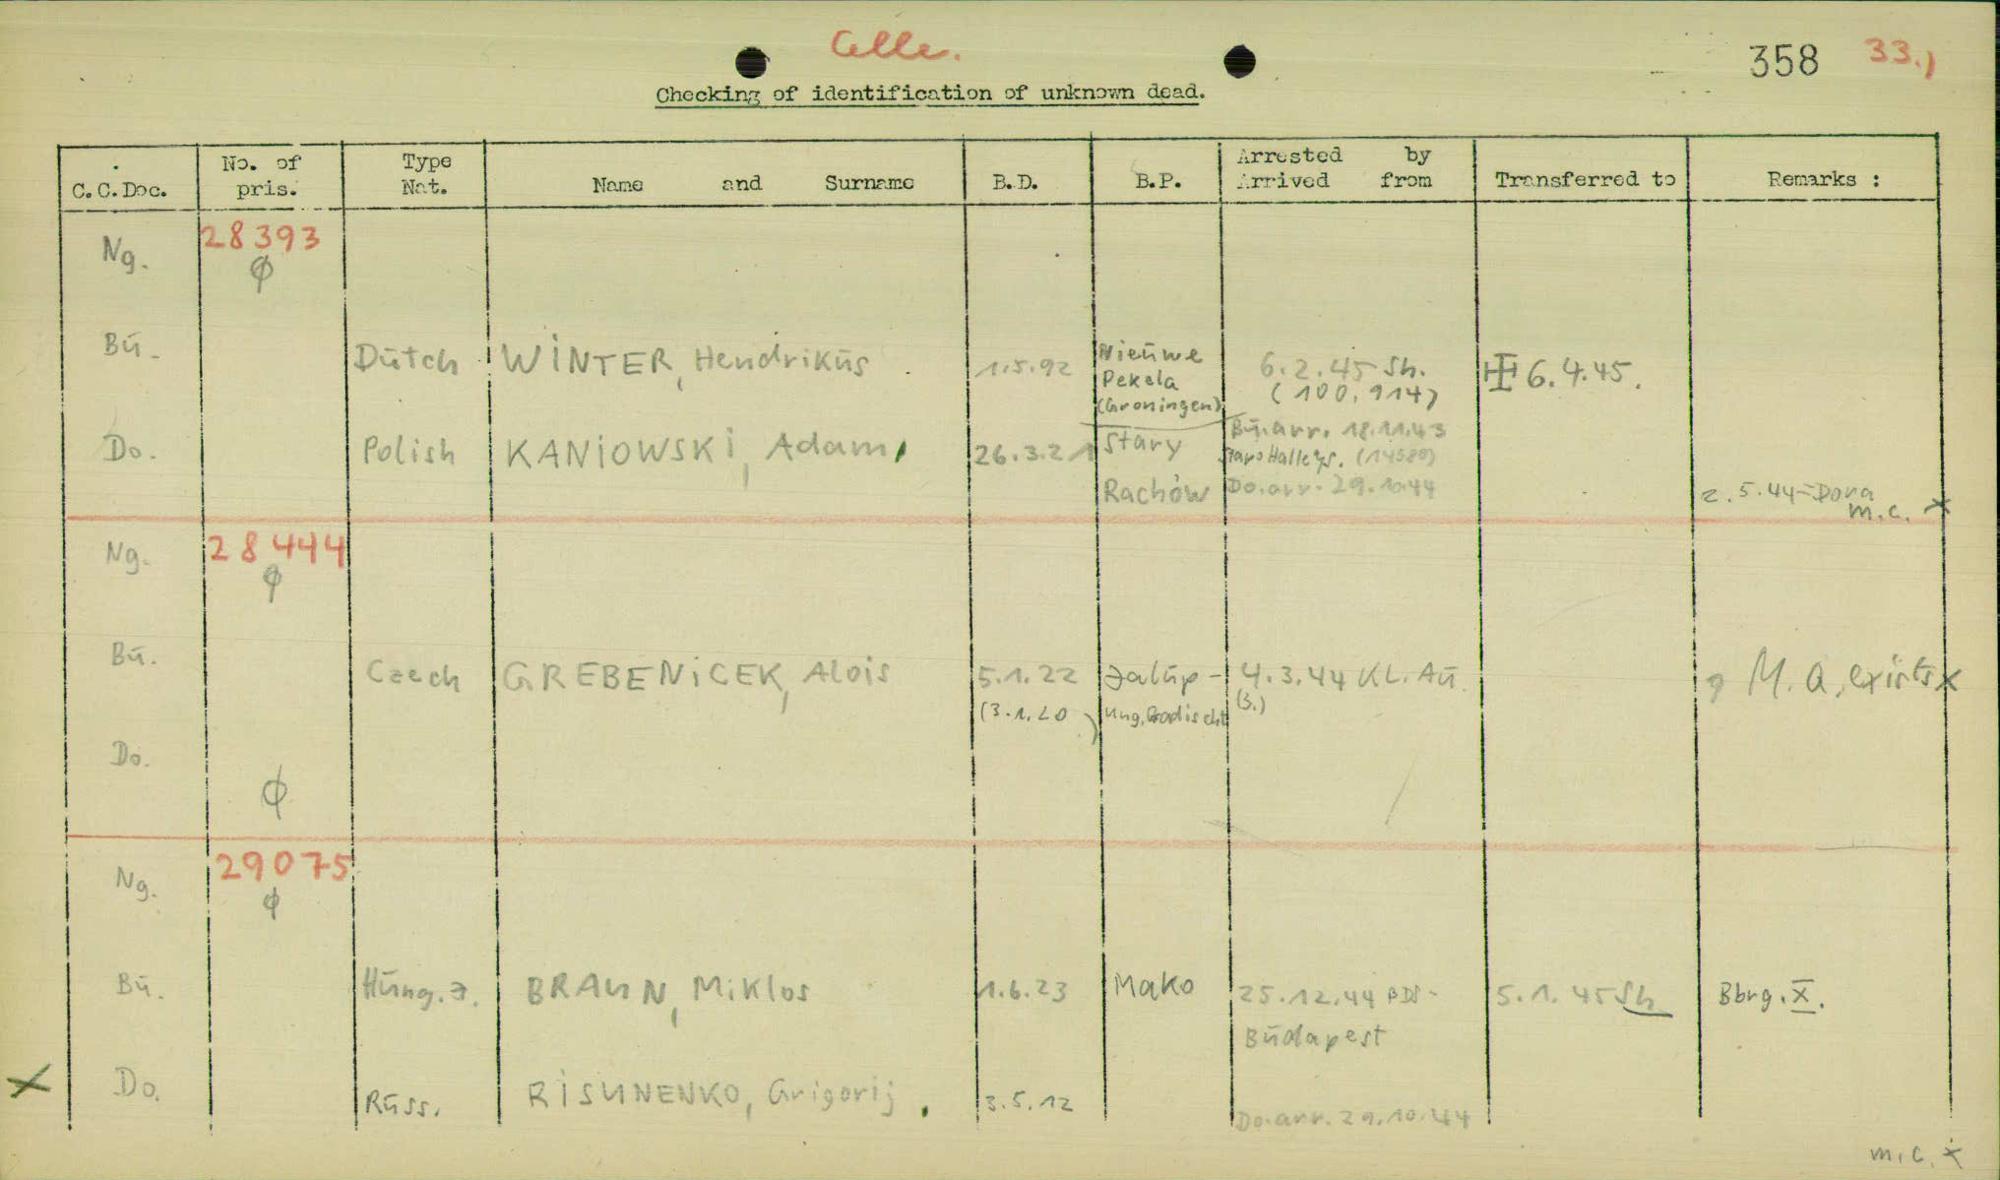 Celle.
358 33.)
Checking of identification of unknown dead.
C.C.Doc. No. of pris. Type Nat. Name and Surname B.D. B.P. Arrested by Arrived from Transferred to Remarks :
Ng. 28393
Ø
Bü. Dutch WINTER, Hendrikus 1.5.92 Nieuwe Pekela (Groningen) 6.2.45 Sh. (100.914) 6.4.45.
Do. Polish KANIOWSKI, Adam 26.3.21 Stary Rachów Bü.arr. 18.11.43
Do.arr. 29.10.44
2.5.44=Dora
m.c. x
Ng. 28444
Ø
Bü. Czech GREBENICEK, Alois 5.1.22 Jalup- 4.3.44 KL. Au. ? M.a. exists x
(3.1.20) Ung.Gradischt (3.)
Do.
Ø
Ng. 29075
Ø
Bü. Hung.J. BRAUN, Miklos 1.6.23 Mako 25.12.44 BDS- 5.1.45 Sh Bbrg. X.
Budapest
x Do. Russ. RISUNENKO, Grigorij. 3.5.12 Do.arr. 29.10.44
m.c. x